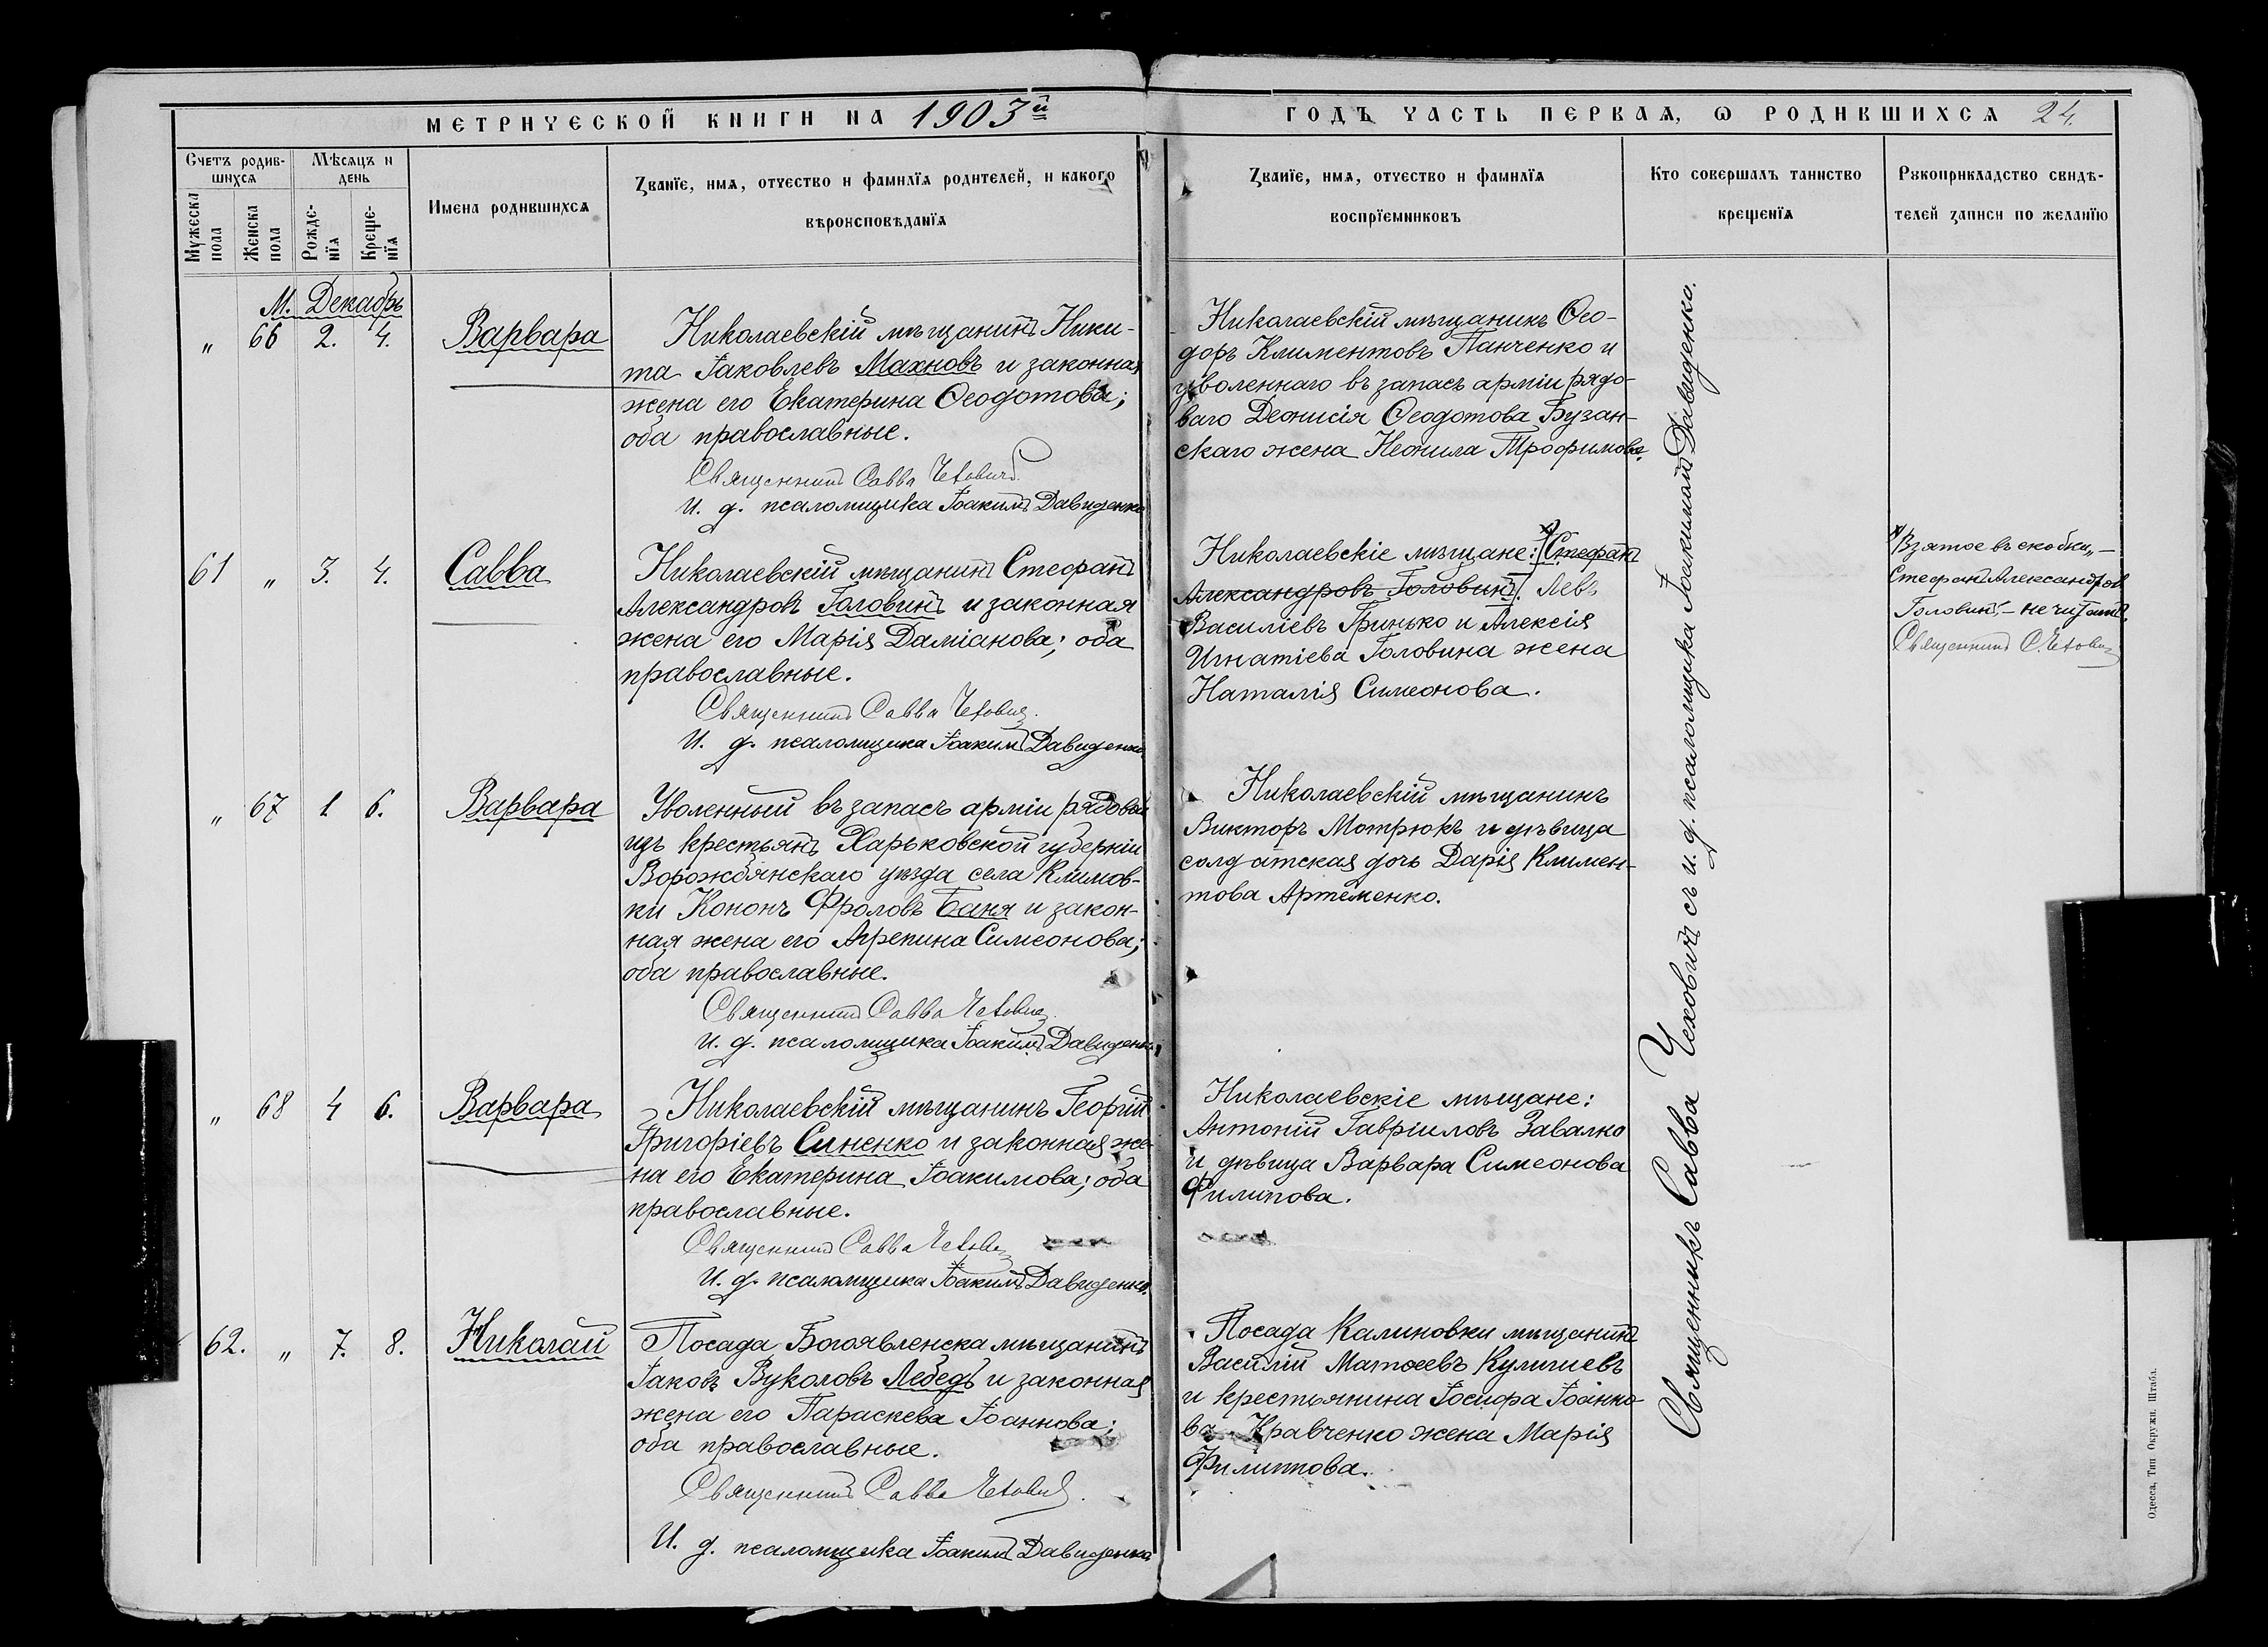 МЕТРИЧЕСКОЙ КНИГИ НА 1903й
ГОДЪ ЧАСТЬ ПЕРВАЯ, Ѡ РОДИВШИХСЯ 24.
Счетъ родив-
шихся
Мѣсяцъ и
день
Мужеска
пола
Женска
пола
Рожде-
нїя
Креще-
нїя
Имена родившихся
Званїе, имя, отчество и фамилїя родителей, и какого
вѣроисповѣданїя
Званїе, имя, отчество и фамилїя
воспрїемниковъ
Кто совершалъ таинство
крещенїя
Рукоприкладство свидѣ-
телей записи по желанїю
М. Декабрь
" 66 2. 4. Варвара
Николаевскій мѣщанинъ Ники-
та Іаковлевъ Махновъ и законная
жена его Екатерина Ѳеодотова;
оба православные.
Священникъ Савва Чеховичъ.
И. д. псаломщика Іоакимъ Давиденко
Николаевскій мѣщанинъ Ѳео-
доръ Климентовъ Панченко и
уволеннаго въ запасъ арміи рядо-
ваго Діонисія Ѳеодотова Бузан-
скаго жена Неонила Трофимова.
61 " 3. 4. Савва
Николаевскій мѣщанинъ Стефанъ
Александровъ Головинъ и законная
жена его Марія Даміанова; оба
православные.
Священникъ Савва Чеховичъ.
И. д. псаломщика Іоакимъ Давиденко
Николаевскіе мѣщане: [Стефанъ
Александровъ Головинъ]. Левъ
Василіевъ Гринько и Алексія
Игнатіева Головина жена
Наталія Симеонова.
х) Взятое въ скобки „—
Стефанъ Александровъ
Головинъ“ — не читать.
Священникъ С. Чеховичъ
" 67 1 6. Варвара
Уволенный въ запасъ арміи рядовой
изъ крестьянъ Харьковской губерніи
Ворожбянскаго уѣзда села Климов-
ки Кононъ Фроловъ Баня и закон-
ная жена его Агрепина Симеонова;
оба православные.
Священникъ Савва Чеховичъ.
И. д. псаломщика Іоакимъ Давиденко
Николаевскій мѣщанинъ
Викторъ Мотрюкъ и дѣвица
солдатская дочь Дарія Климен-
това Артеменко.
" 68 4 6. Варвара
Николаевскій мѣщанинъ Георгій
Григоріевъ Синенко и законная же-
на его Екатерина Іоакимова; оба
православные.
Священникъ Савва Чеховичъ
И. д. псаломщика Іоакимъ Давиденко.
Николаевскіе мѣщане:
Антоній Гавріиловъ Завалко
и дѣвица Варвара Симеонова
Филипова.
62. " 7. 8. Николай
Посада Богоявленска мѣщанинъ
Іаковъ Вуколовъ Лебедь и законная
жена его Параскева Іоаннова;
оба православные.
Священникъ Савва Чеховичъ.
И. д. псаломщика Іоакимъ Давиденко
Посада Калиновки мѣщанинъ
Василій Матѳеевъ Куличиевъ
и крестьянина Іосифа Іоанно-
ва Кравченко жена Марія
Филиппова.
Священникъ Савва Чеховичъ съ и. д. псаломщика Іоакимомъ Давиденко.
Одесса, Тип. Окружн. Штаба.